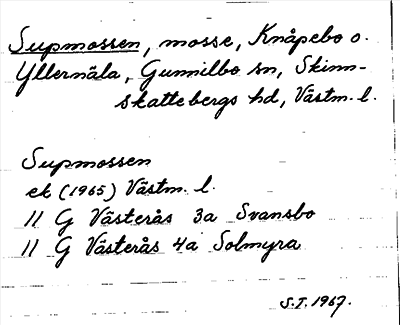 Supmossen, mosse, Knåpebo o.
Yllernäla, Gunnilbo sn, Skinn-
skattebergs hd, Västm. l.
Supmossen
ek (1965) Västm. l.
11 G Västerås 3a Svansbo
11 G Västerås 4a Solmyra
S.T. 1967.